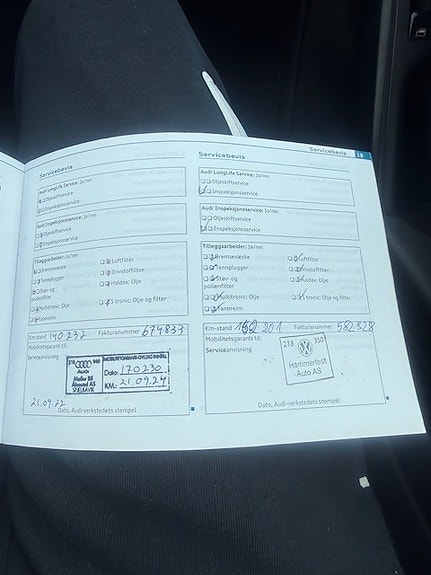 Servicebevis 19
Servicebevis
Audi LongLife Service: Ja/nei
Oljeskiftservice
Inspeksjonsservice
Audi Inspeksjonsservice: Ja/nei
Oljeskiftservice
Inspeksjonsservice
Tilleggsarbeider: Ja/nei
Bremsevæske
Luftfilter
Tennplugger
Drivstoffilter
Støv- og pollenfilter
Haldex: Olje
Multitronic: Olje
S tronic: Olje og filter
Tannreim
Km-stand 140 232 Fakturanummer 674833
Mobilitetsgaranti til:
Serviceanvisning
218 Audi 960
Møller Bil
Ålesund AS
SPJELKAVIK
Dato: 170 230
KM.: 21.09.24
21.09.22
Dato, Audi-verkstedets stempel
Servicebevis
Audi LongLife Service: Ja/nei
Oljeskiftservice
Inspeksjonsservice
Audi Inspeksjonsservice: Ja/nei
Oljeskiftservice
Inspeksjonsservice
Tilleggsarbeider: Ja/nei
Bremsevæske
Luftfilter
Tennplugger
Drivstoffilter
Støv- og pollenfilter
Haldex: Olje
Multitronic: Olje
S tronic: Olje og filter
Tannreim
Km-stand Fakturanummer 582828
Mobilitetsgaranti til:
Serviceanvisning
218 350
Hammerfest
Auto AS
Dato, Audi-verkstedets stempel